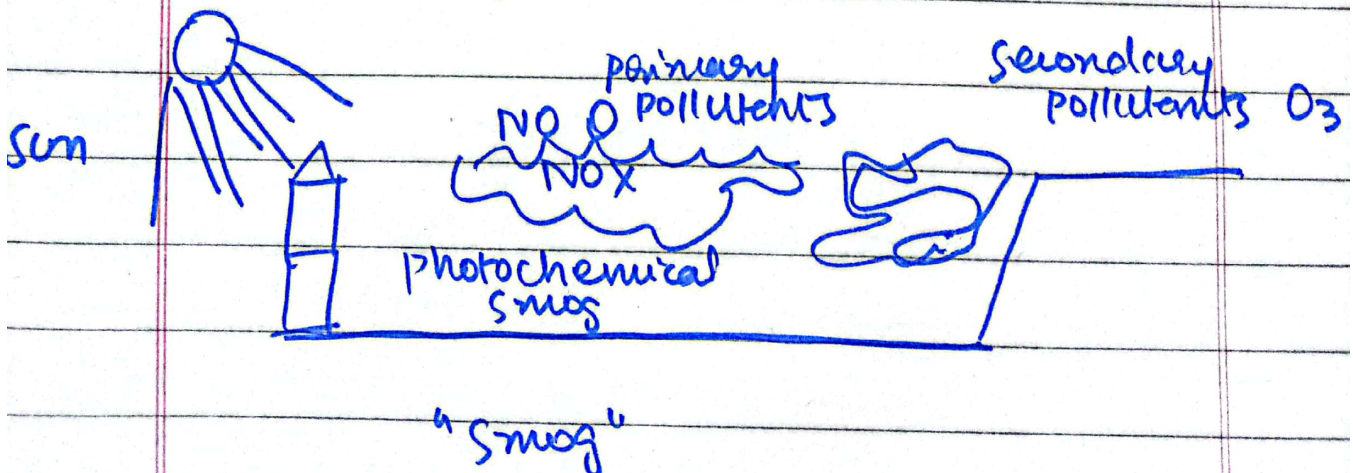 sun
primary
pollutents
NO O
NOX
secondary
pollutents O3
photochemical
smog
"smog"